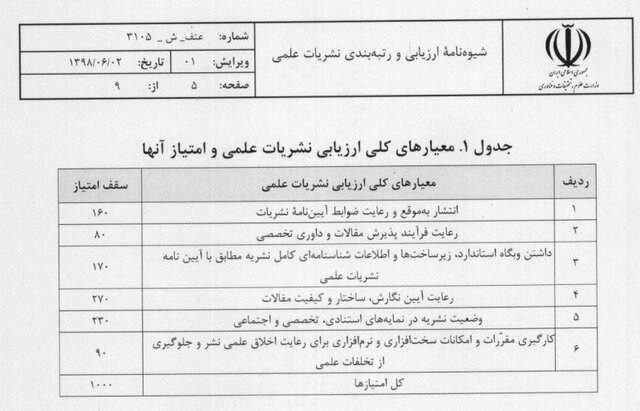 جمهوری اسلامی ایران
وزارت علوم، تحقیقات و فناوری
شیوه‌نامهٔ ارزیابی و رتبه‌بندی نشریات علمی
شماره: عتف_ش _ ۳۱۰۵
ویرایش: ۰۱ تاریخ: ۱۳۹۸/۰۶/۰۲
صفحه: ۵ از: ۹
جدول ۱. معیارهای کلی ارزیابی نشریات علمی و امتیاز آنها
ردیف معیارهای کلی ارزیابی نشریات علمی سقف امتیاز
۱ انتشار به‌موقع و رعایت ضوابط آیین‌نامهٔ نشریات ۱۶۰
۲ رعایت فرآیند پذیرش مقالات و داوری تخصصی ۸۰
۳ داشتن وبگاه استاندارد، زیرساخت‌ها و اطلاعات شناسنامه‌ای کامل نشریه مطابق با آیین نامه ۱۷۰
نشریات علمی
۴ رعایت آیین نگارش، ساختار و کیفیت مقالات ۲۷۰
۵ وضعیت نشریه در نمایه‌های استنادی، تخصصی و اجتماعی ۲۳۰
۶ کارگیری مقرّرات و امکانات سخت‌افزاری و نرم‌افزاری برای رعایت اخلاق علمی نشر و جلوگیری ۹۰
از تخلفات علمی
کل امتیازها ۱۰۰۰